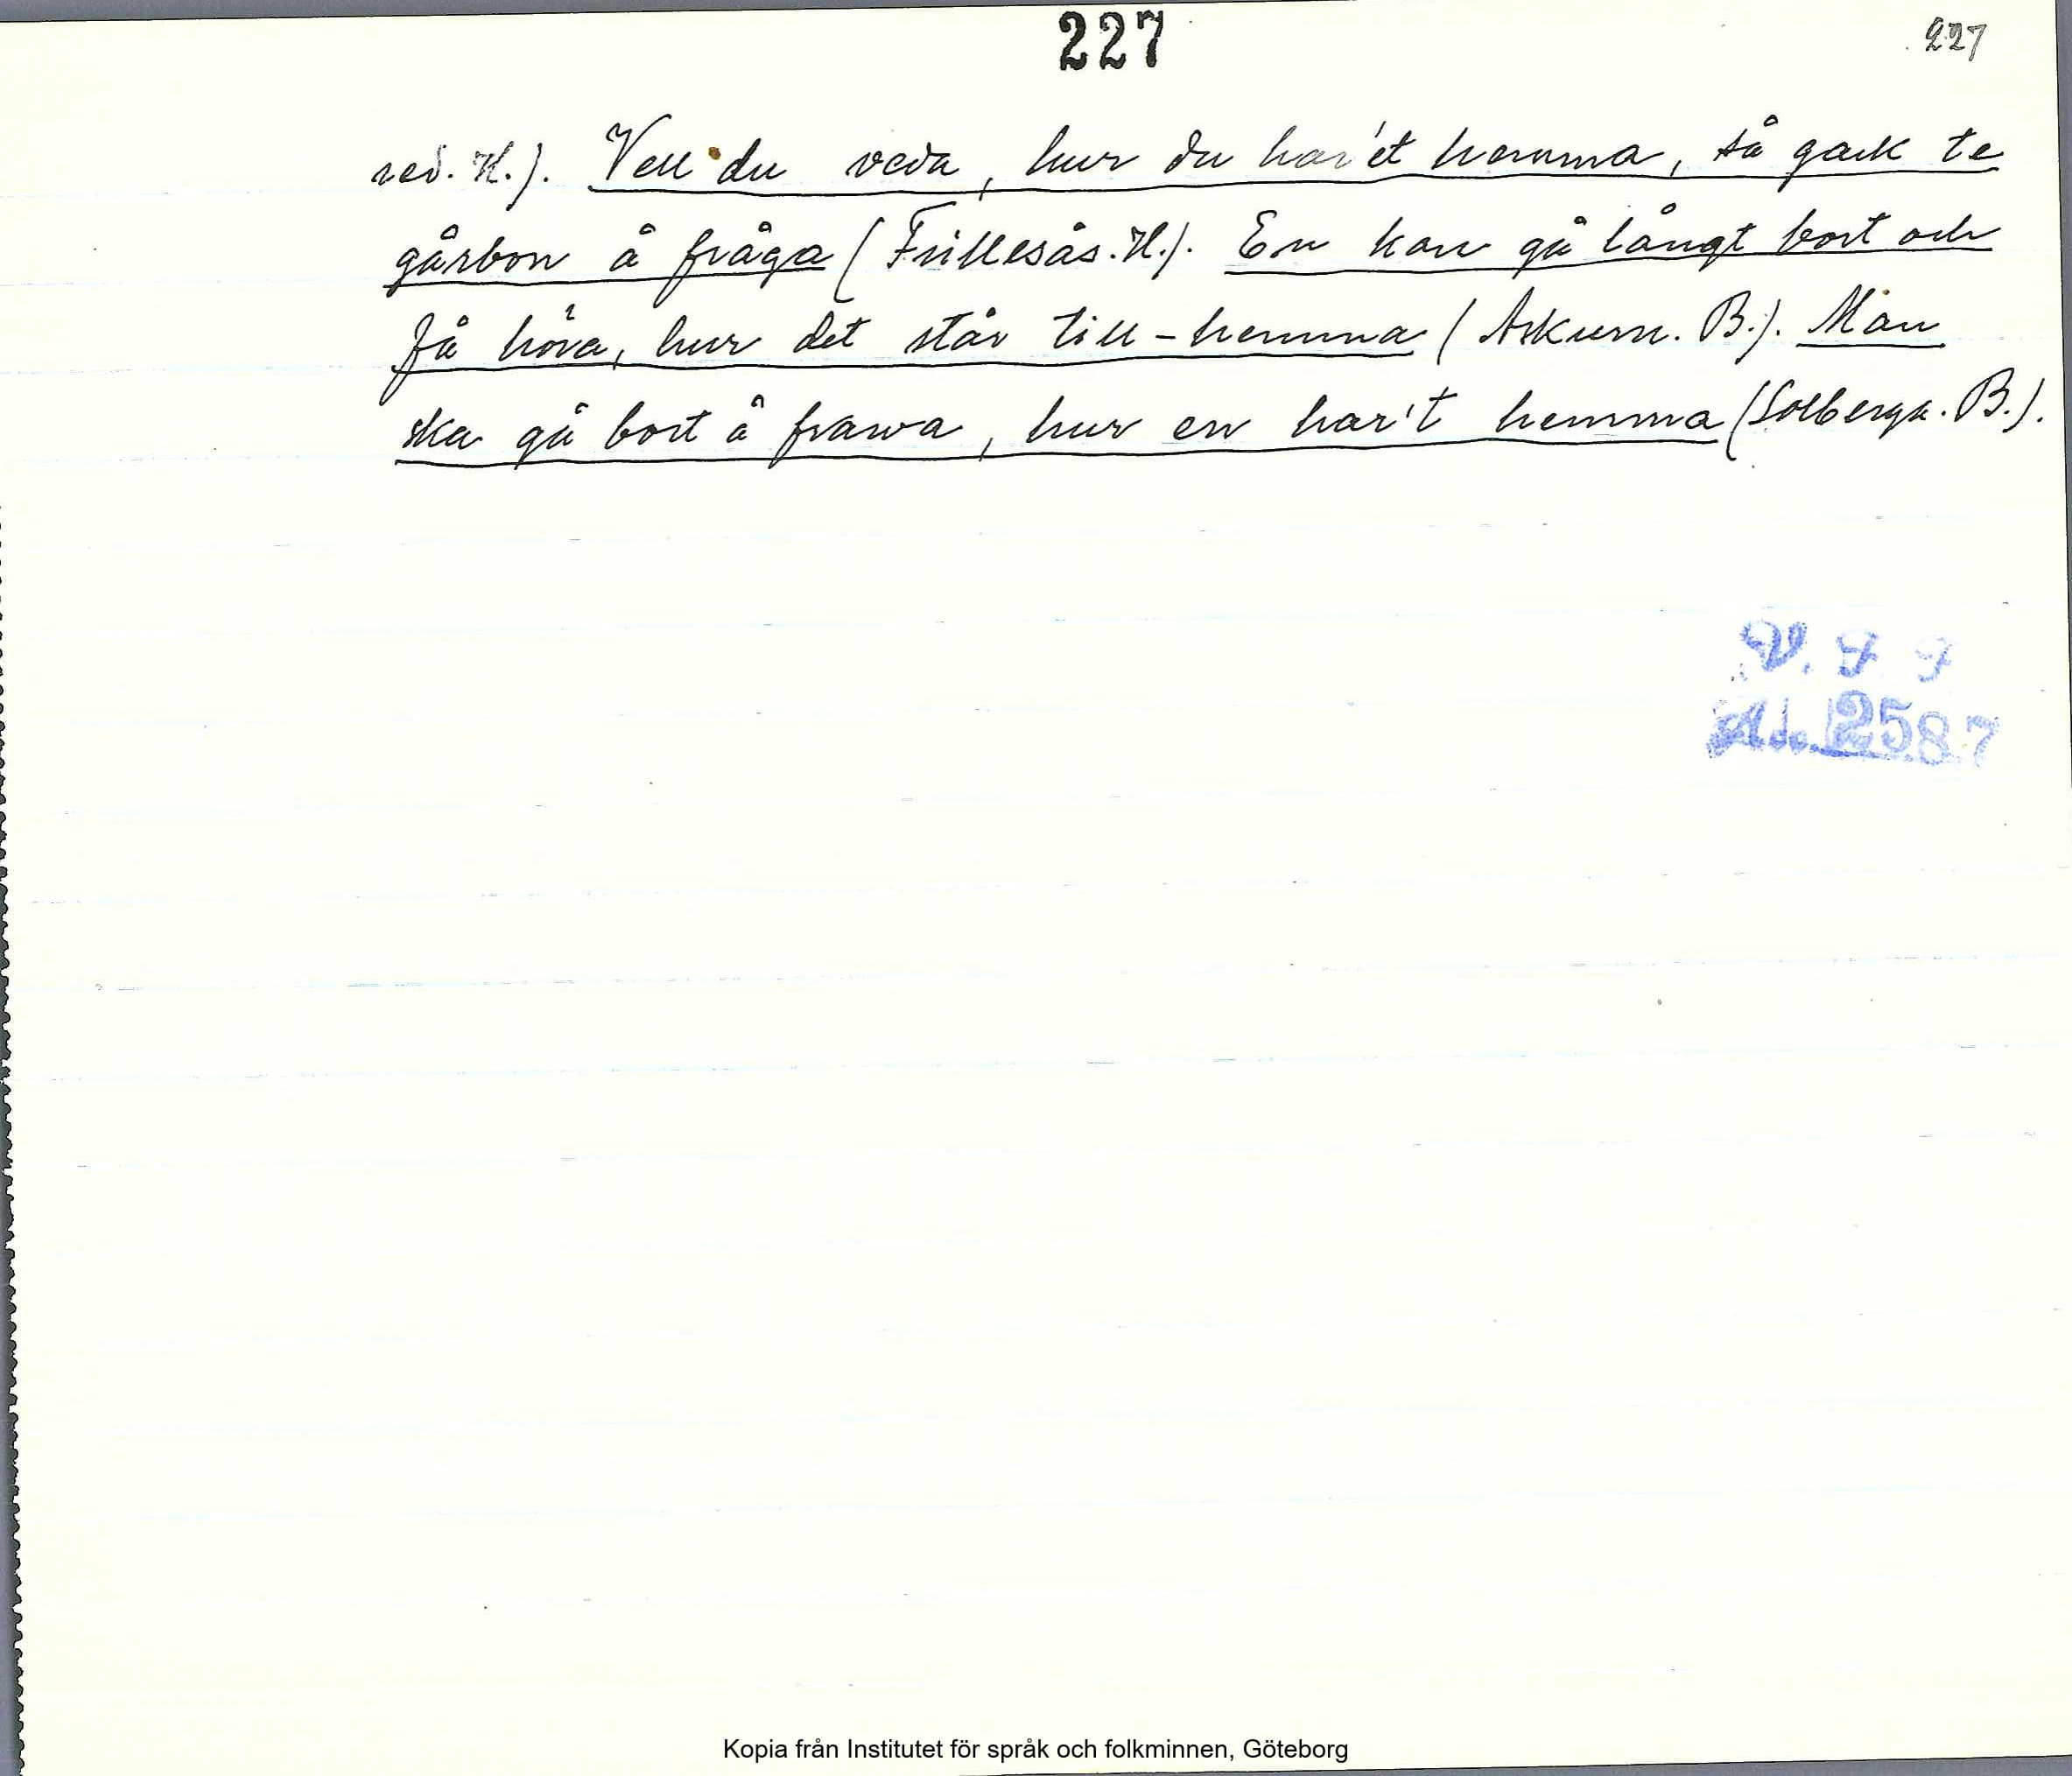 227
227
red. H.). Vell du veda, hur du har'et hemma, så gack te
gårbon å fråga (Frillesås. H.). En kan gå långt bort och
få höra, hur det står till-hemma (Askum. B.). Man
ska gå bort å frawa, hur en har't hemma (Solberga. B.).
2587
Kopia från Institutet för språk och folkminnen, Göteborg